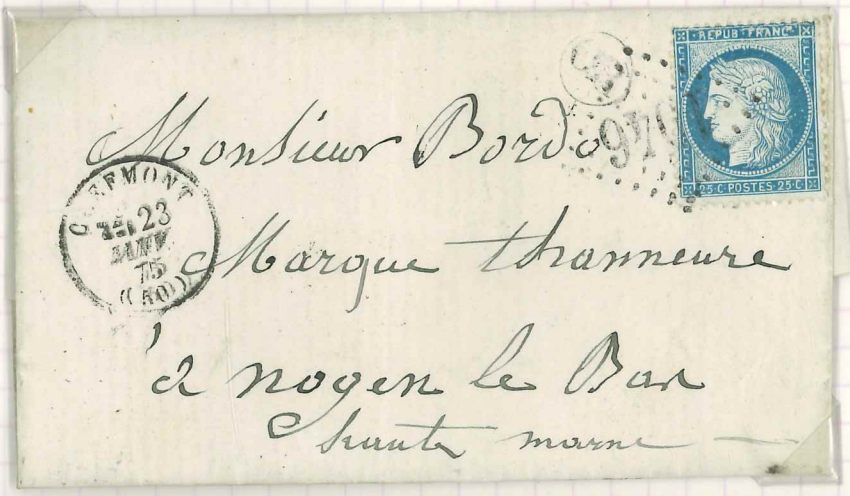 REPUB FRANC
25·C·POSTES·25·C
Monsieur Bordo
CLEFMONT
23
JANV.
75
(50)
Marque thanneure
à nogen le Bas
haute marne